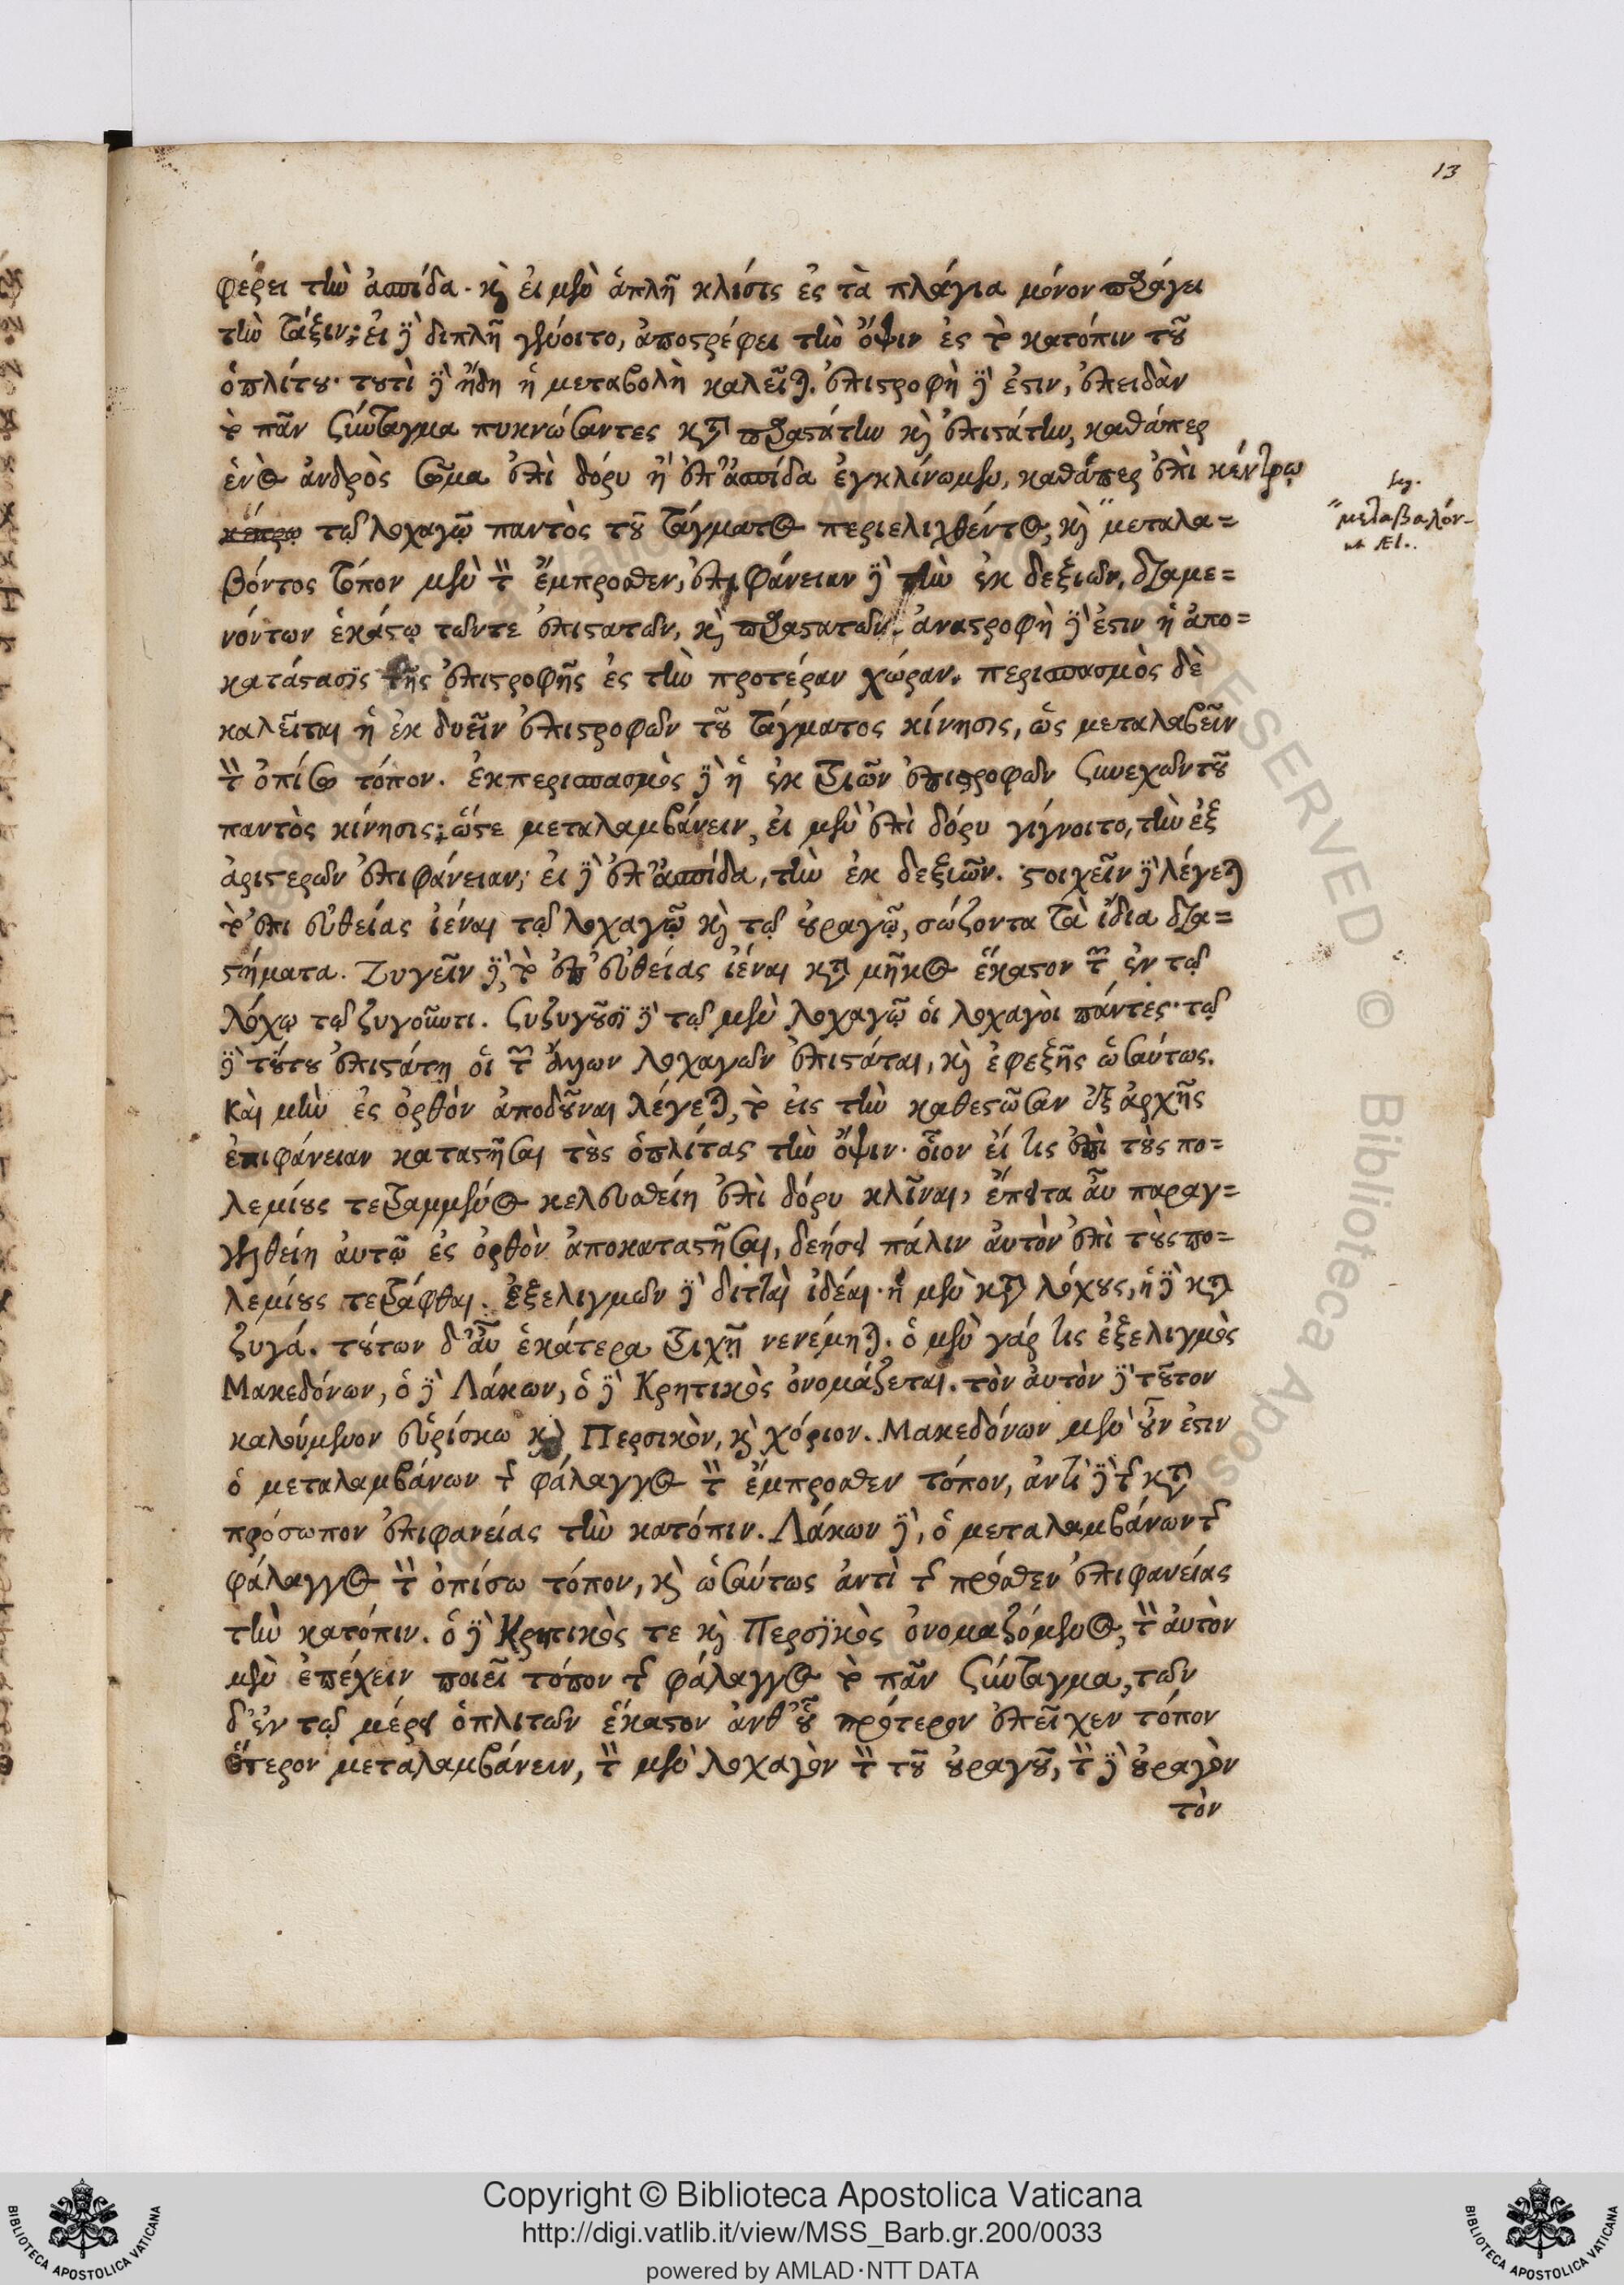 13
φέρει τὴν ἀσπίδα. καὶ εἰ μὲν ἁπλῆ κλίσις ἐς τὰ πλάγια μόνον παράγει
τὴν τάξιν; εἰ δὲ διπλῆ γένοιτο, ἀποστρέφει τὴν ὄψιν ἐς τὸ κατόπιν τοῦ
ὁπλίτου. τουτὶ δὲ ἤδη ἡ μεταβολὴ καλεῖται. ἐπιστροφὴ δὲ ἐστιν, ἐπειδὰν
τὸ πᾶν σύνταγμα πυκνώσαντες κατὰ παραστάτην καὶ ἐπιστάτην, καθάπερ
ἑνὸς ἀνδρὸς σῶμα ἐπὶ δόρυ ἢ ἐπ' ἀσπίδα ἐγκλίνωμεν, καθάπερ ἐπὶ κέντρῳ
τῷ λοχαγῷ παντὸς τοῦ τάγματος περιελιχθέντος, καὶ " μεταλα=
βόντος τόπον μὲν τὸν ἔμπροσθεν, ἐπιφάνειαν δὲ τὴν ἐκ δεξιῶν, διαμε=
νόντων ἑκάστῳ τῶντε ἐπιστατῶν, καὶ παραστατῶν. ἀναστροφὴ δὲ ἐστιν ἡ ἀπο=
κατάστασις τῆς ἐπιστροφῆς ἐς τὴν προτέραν χώραν. περισπασμὸς δὲ
καλεῖται ἡ ἐκ δυεῖν ἐπιστροφῶν τοῦ τάγματος κίνησις, ὡς μεταλαβεῖν
τὸν ὀπίσω τόπον. ἐκπερισπασμὸς δὲ ἡ ἐκ τριῶν ἐπιστροφῶν συνεχῶν τοῦ
παντὸς κίνησις; ὥστε μεταλαμβάνειν, εἰ μὲν ἐπὶ δόρυ γίγνοιτο, τὴν ἐξ
ἀριστερῶν ἐπιφάνειαν; εἰ δὲ ἐπ' ἀσπίδα, τὴν ἐκ δεξιῶν. στοιχεῖν δὲ λέγεται
τὸ ἐπ' εὐθείας ἰέναι τῷ λοχαγῷ καὶ τῷ οὐραγῷ, σώζοντα τὰ ἴδια δια=
στήματα. Ζυγεῖν δὲ, τὸ ἐπ' εὐθείας ἰέναι κατὰ μῆκος ἕκαστον τῶν ἐν τῷ
λόχῳ τῷ ζυγοῦντι. συζυγοῦσι δὲ τῷ μὲν λοχαγῷ οἱ λοχαγοὶ πάντες. τῷ
δὲ τούτου ἐπιστάτῃ οἱ τῶν ἄλλων λοχαγῶν ἐπιστάται, καὶ ἐφεξῆς ὡσαύτως.
Καὶ μὴν ἐς ὀρθὸν ἀποδοῦναι λέγεται, τὸ εἰς τὴν καθεστῶσαν ἐξ ἀρχῆς
ἐπιφάνειαν καταστῆσαι τοὺς ὁπλίτας τὴν ὄψιν. οἷον εἴ τις ἐπὶ τοὺς πο=
λεμίους τεταγμένος κελευσθείη ἐπὶ δόρυ κλῖναι, ἔπειτα αὖ παραγ=
γελθείη αὐτῷ ἐς ὀρθὸν ἀποκαταστῆσαι, δεήσει πάλιν αὐτὸν ἐπὶ τοὺς πο=
λεμίους τετράφθαι. Ἐξελιγμῶν δὲ διτταὶ ἰδέαι. ἡ μὲν κατὰ λόχους, ἡ δὲ κατὰ
ζυγά. τούτων δ' αὖ ἑκάτερα τριχῇ νενέμηται. ὁ μὲν γάρ τις ἐξελιγμὸς
Μακεδόνων, ὁ δὲ Λάκων, ὁ δὲ Κρητικὸς ὀνομάζεται. τὸν αὐτὸν δὲ τοῦτον
καλούμενον εὑρίσκω καὶ Περσικὸν, καὶ χόριον. Μακεδόνων μὲν οὖν ἐστιν
ὁ μεταλαμβάνων τῆς φάλαγγος τὸν ἔμπροσθεν τόπον, ἀντὶ δὲ τῆς κατὰ
πρόσωπον ἐπιφανείας τὴν κατόπιν. Λάκων δὲ, ὁ μεταλαμβάνων τῆς
φάλαγγος τὸν ὀπίσω τόπον, καὶ ὡσαύτως ἀντὶ τῆς πρόσθεν ἐπιφανείας
τὴν κατόπιν. ὁ δὲ Κρητικὸς τε καὶ Περσικὸς ὀνομαζόμενος, τὸν αὐτὸν
μὲν ἐπέχειν ποιεῖ τόπον τῆς φάλαγγος τὸ πᾶν σύνταγμα, τῶν
δ' ἐν τῷ μέρει ὁπλιτῶν ἕκαστον ἀνθ' οὗ πρότερον ἐπεῖχεν τόπον
ἕτερον μεταλαμβάνειν, τὸν μὲν λοχαγὸν τὸν τοῦ οὐραγοῦ, τὸν δὲ οὐραγὸν
τὸν
leg.
" μεταβαλόν-
ut Æl.
Copyright © Biblioteca Apostolica Vaticana
http://digi.vatlib.it/view/MSS_Barb.gr.200/0033
powered by AMLAD·NTT DATA
BIBLIOTECA APOSTOLICA VATICANA
BIBLIOTECA APOSTOLICA VATICANA